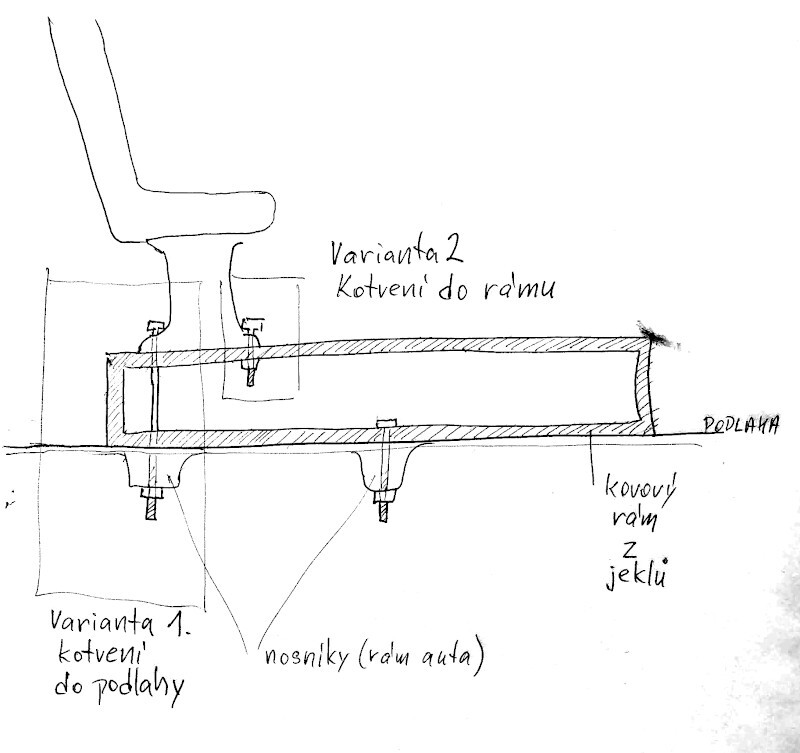 Varianta 2
Kotvení do rámu
PODLAHA
kovový
rám
z
jeklů
Varianta 1.
kotvení
do podlahy
nosníky (rám auta)